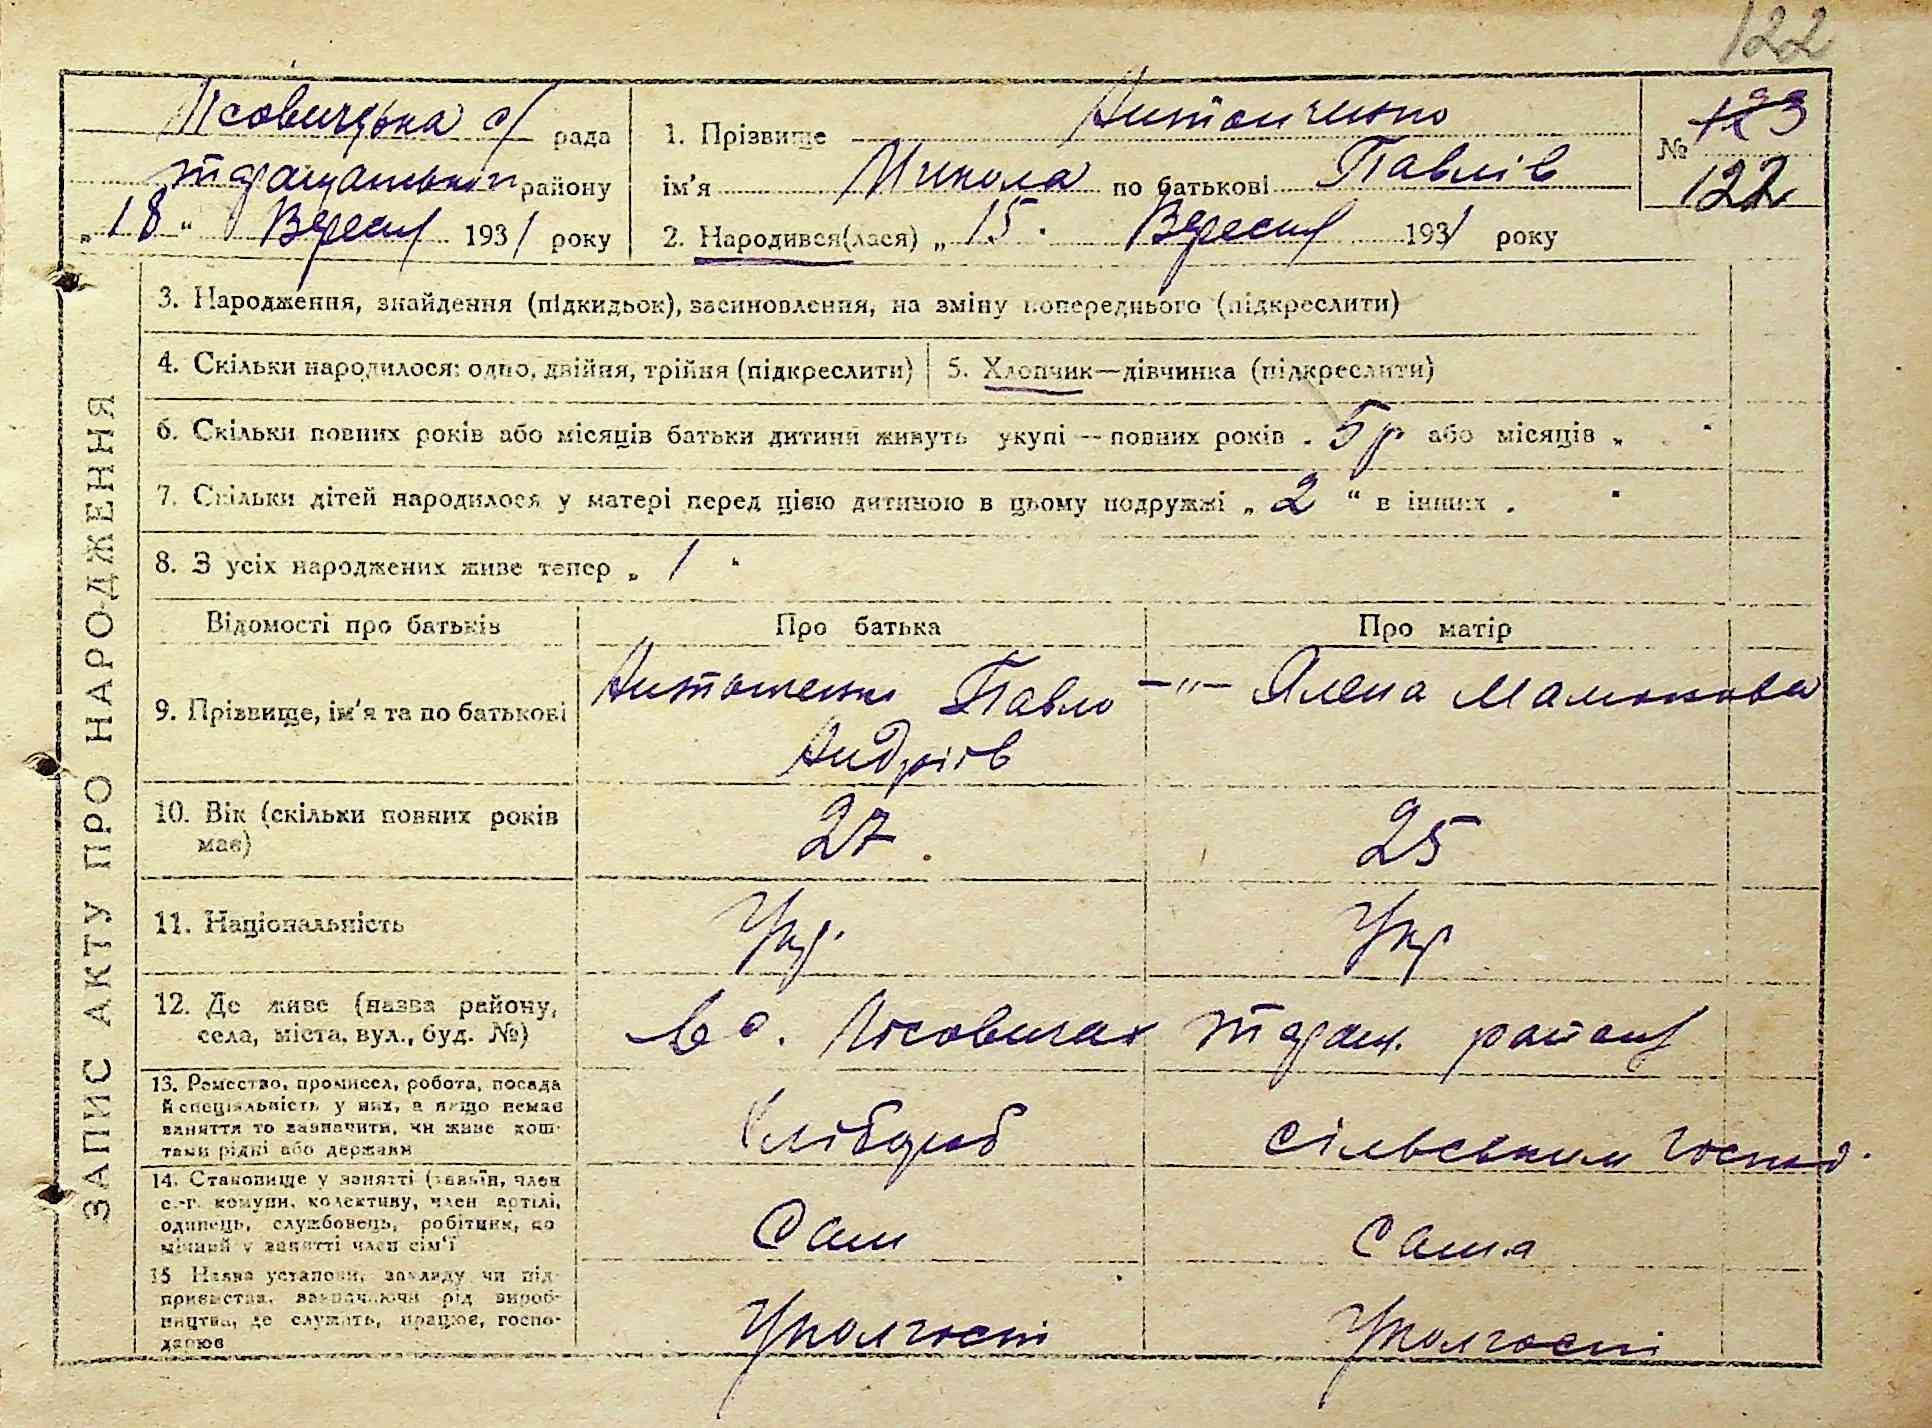 122
Лісовицька с/ рада
Таращанського району
„18“ Вересня 1931 року
1. Прізвище Антонченко
ім'я Микола по батькові Павлів
2. Народився(лася) „15. Вересня 1931 року
№ 123
122
ЗАПИС АКТУ ПРО НАРОДЖЕННЯ
3. Народження, знайдення (підкидьок), засиновлення, на зміну попереднього (підкреслити)
4. Скільки народилося: одно, двійня, трійня (підкреслити)
5. Хлопчик—дівчинка (підкреслити)
6. Скільки повних років або місяців батьки дитини живуть укупі — повних років „ 5 р. або місяців „
7. Скільки дітей народилося у матері перед цією дитиною в цьому подружжі „ 2 “ в інших .
8. З усіх народжених живе тепер „ 1
Відомості про батьків
Про батька
Про матір
9. Прізвище, ім'я та по батькові
Антонченко Павло
Андріїв
—„— Ялена
10. Вік (скільки повних років
має)
27
25
11. Національність
Укр.
Укр
12. Де живе (назва району,
села, міста, вул., буд. №)
в с. Лісовичах Таращ. району
13. Ремество, промисел, робота, посада
й спеціяльність у них, а якщо немає
заняття то зазначити, чи живе кош-
тами рідні або держави
Хлібороб
сільським госпód.
14. Становище у занятті (хазяїн, член
с.-г. комуни, колективу, член артілі,
одинець, службовець, робітник, по
мічний у занятті член сім'ї
Сам
Сама
15 Назва установи, закладу чи під-
приємства, зазначаючи рід вироб-
ництва, де служить, працює, госпо-
дарює
У колгоспі
У колгоспі